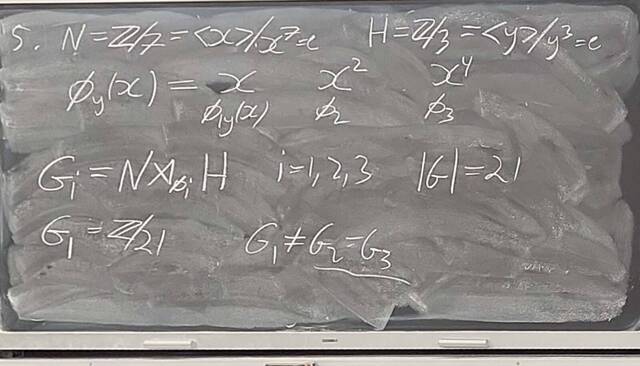 5. N = ℤ/7 = <x>/x⁷=e H = ℤ/3 = <y>/y³=e
ϕ_y(x) = x x² x⁴
ϕ₁y(x) ϕ₂ ϕ₃
G_i = N⋊_ϕi H i=1,2,3 |G|=21
G₁ = ℤ/21 G₁ ≠ G₂ = G₃